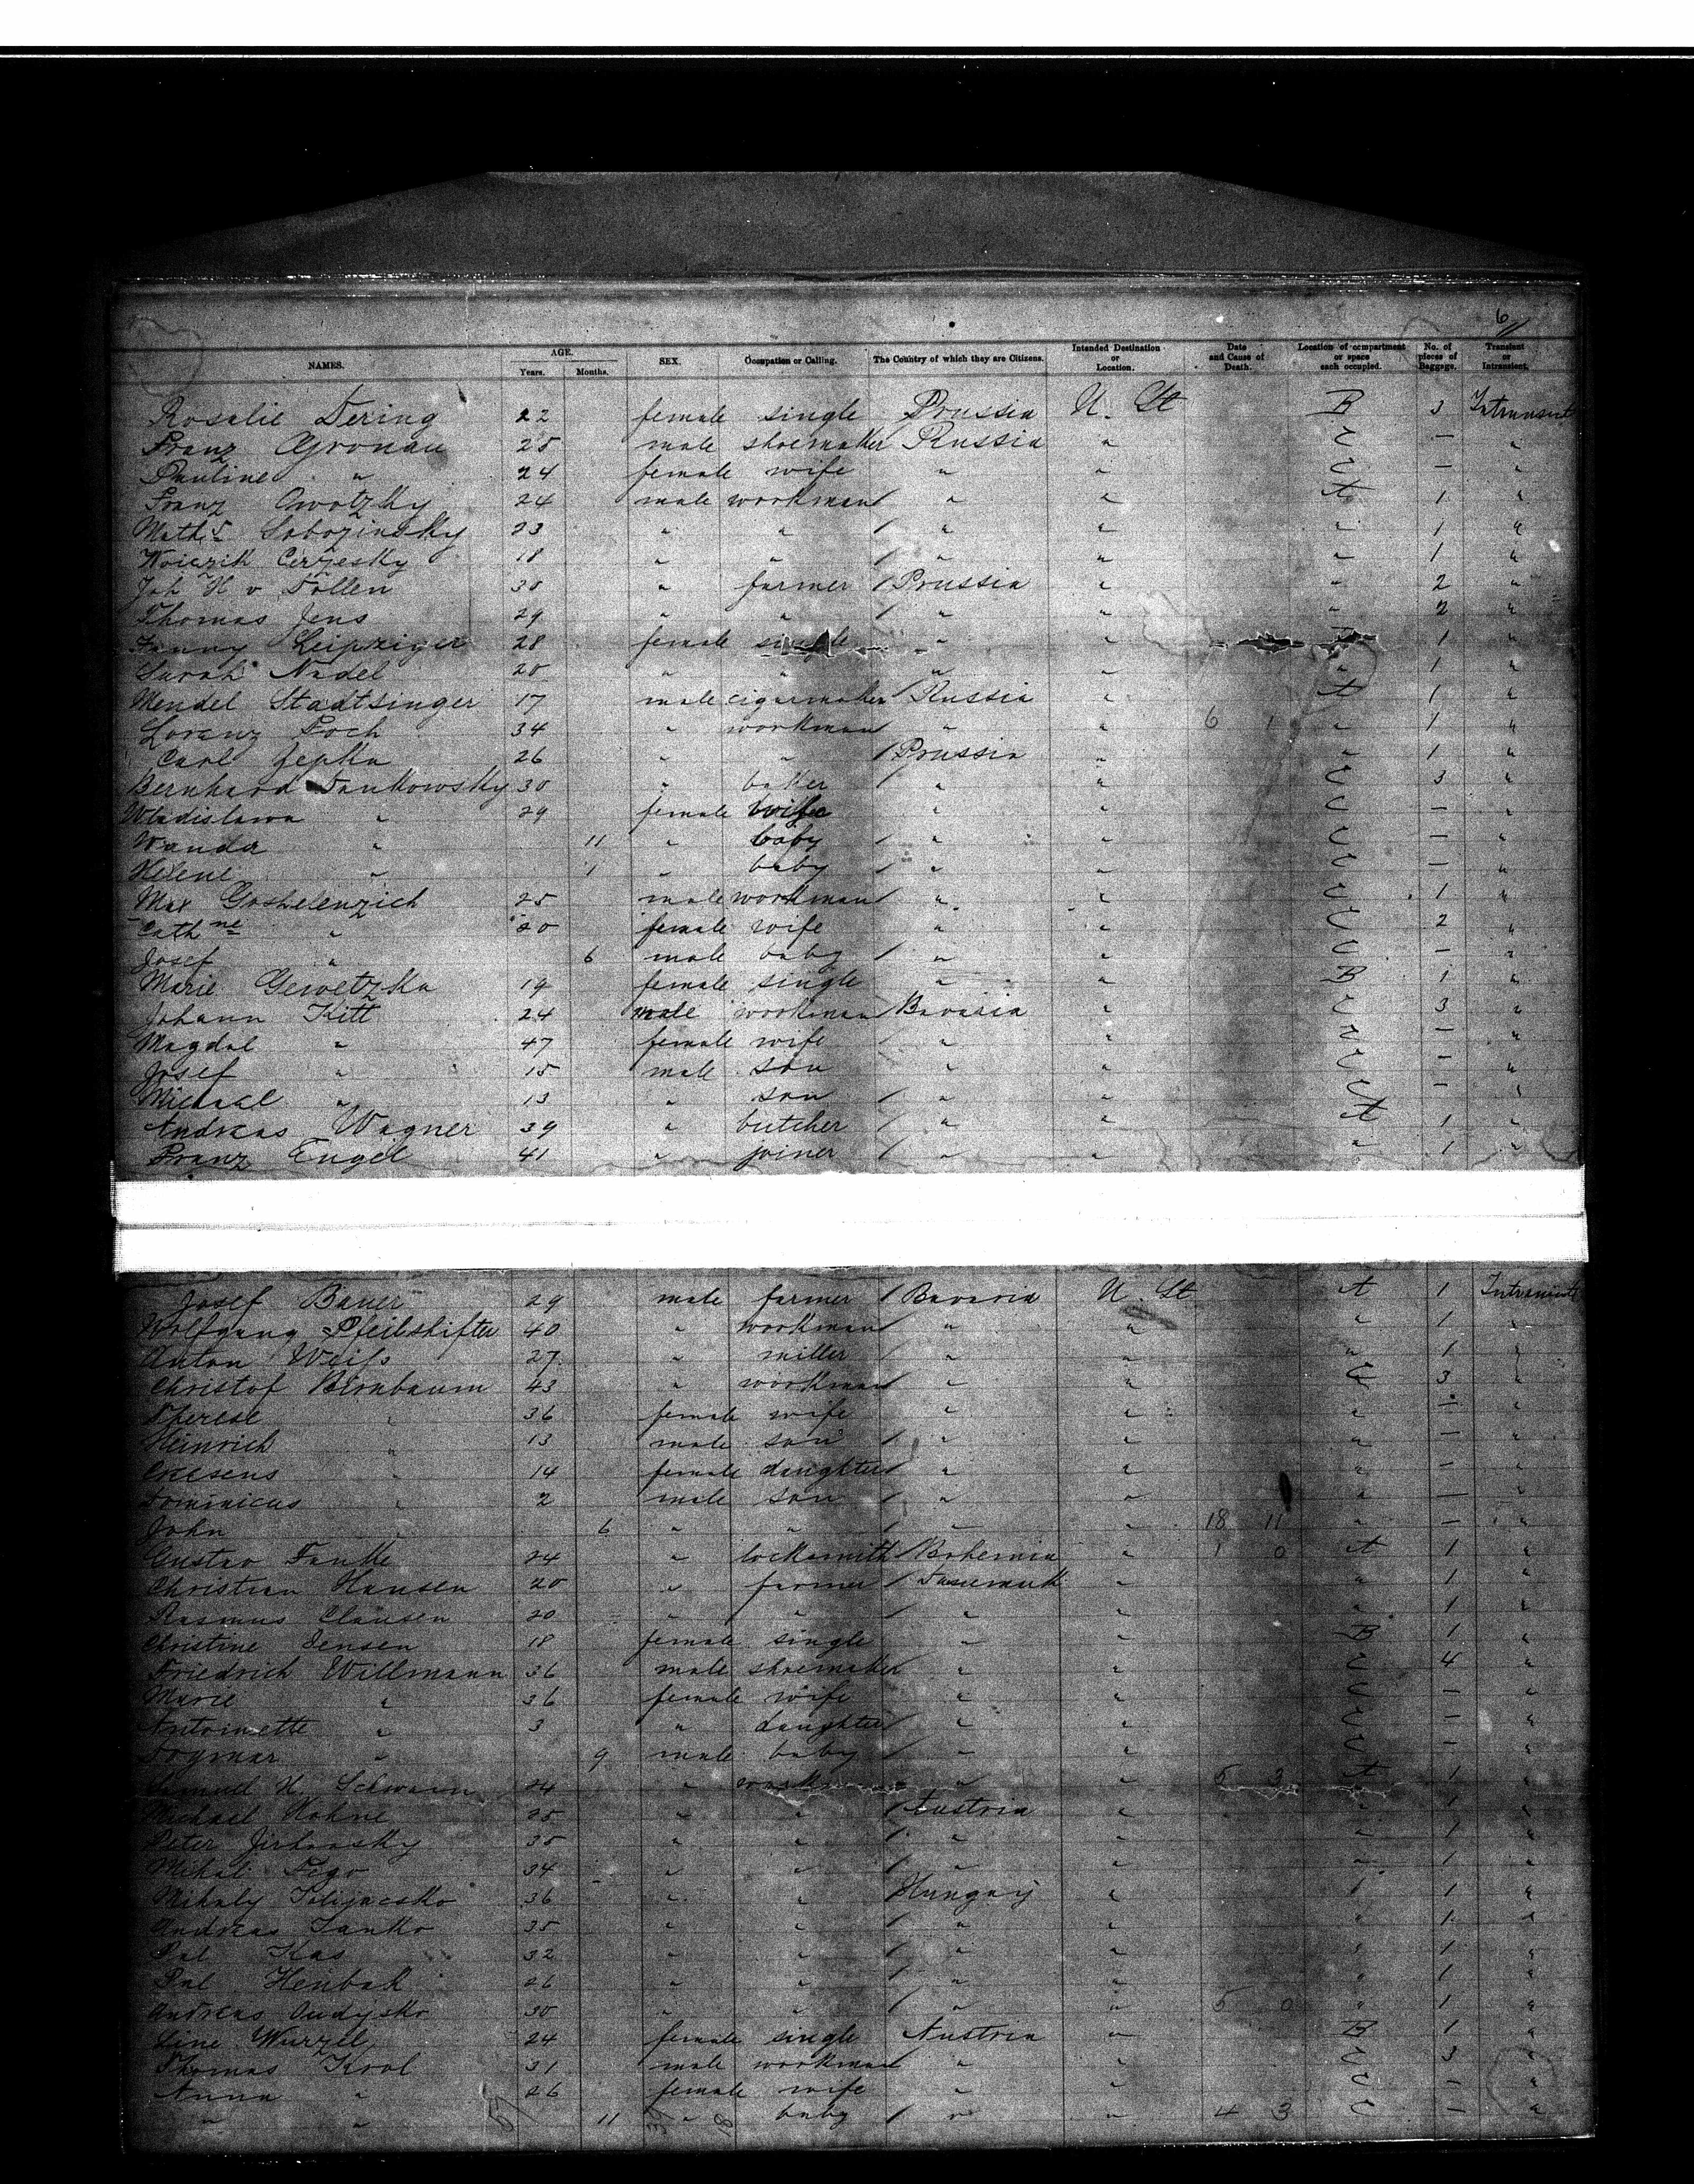 6
NAMES. AGE. Years. Months. SEX. Occupation or Calling. The Country of which they are Citizens. Intended Destination or Location. Date and Cause of Death. Location of compartment or space each occupied. No. of pieces of Baggage. Transient or Intransient.
Rosalie Dering 22 female single Prussia U. St B 3 Intransient
Franz Gronau 25 male shoemaker Russia " C — "
Pauline " 24 female wife " " C — "
Franz Owotzky 24 male workman " " A 1 "
Math. Sobozinsky 23 " " " " " 1 "
Woiezik Cerzesky 18 " " " " " 1 "
Joh H v Tollen 38 " farmer Prussia " " 2 "
Thomas Jens 29 " " " " " 2 "
Fanny Leipziger 28 female single " " 1 "
Sarah Nadel 20 " " " " " 1 "
Mendel Stadtsinger 17 male cigarmaker Russia " A 1 "
Lorenz Poch 34 " workman " " 6 1 " 1 "
Carl Zepka 26 " " Prussia " " 1 "
Bernhard Jankowsky 30 " baker " " C 3 "
Wladislawa " 29 female wife " " C — "
Wanda " 11 " baby " " C — "
Helene " 1 " baby " " C — "
Max Goshelenzich 25 male workman " " C 1 "
Cathne " 20 female wife " " C 2 "
Josef " 6 male baby " " C — "
Marie Gewetzka 19 female single " " B 1 "
Johann Kitt 24 male workman Bavaria " C 3 "
Magdal " 47 female wife " " C — "
Josef " 15 male son " " C — "
Michael " 13 " son " " C — "
Andreas Wagner 39 " butcher " " A 1 "
Franz Engel 41 " joiner " " " 1 "
Josef Bauer 29 male farmer Bavaria U. St A 1 Intransient
Wolfgang Pfeilshifter 40 " workman " " " 1 "
Anton Weiss 27 " miller " " " 1 "
Christof Birnbaum 43 " workman " " C 3 "
Therese " 36 female wife " " " — "
Heinrich " 13 male son " " " — "
Cresens " 14 female daughter " " " — "
Dominicus " 2 male son " " " — "
John " 6 " " " " 18 11 " — "
Gustav Funke 24 " locksmith Bohemia " 1 0 A 1 "
Christian Hansen 20 " farmer Danemark " " 1 "
Rasmus Clausen 20 " " " " " 1 "
Christine Jensen 18 female single " " B 1 "
Friedrich Willmann 36 male shoemaker " " C 4 "
Marie " 36 female wife " " C — "
Antoinette " 3 " daughter " " C — "
Dogmar " 9 male baby " " C — "
Samuel H. Schwann 24 " workman " " 5 3 A 1 "
Michael Kohne 25 " " Austria " " 1 "
Peter 35 " " " " " 1 "
Mihal Figo 34 " " " " " 1 "
Mihaly 36 " " Hungary " " 1 "
Andreas Janko 35 " " " " " 1 "
Pal Kas 32 " " " " " 1 "
Pal Henbak 26 " " " " " 1 "
Andreas Oudysko 30 " " " " 5 0 " 1 "
Line Wurzel 24 female single Austria " B 1 "
Thomas Krol 31 male workman " " C 3 "
Anna " 26 female wife " " C — "
" " 11 " baby " " 4 3 C — "